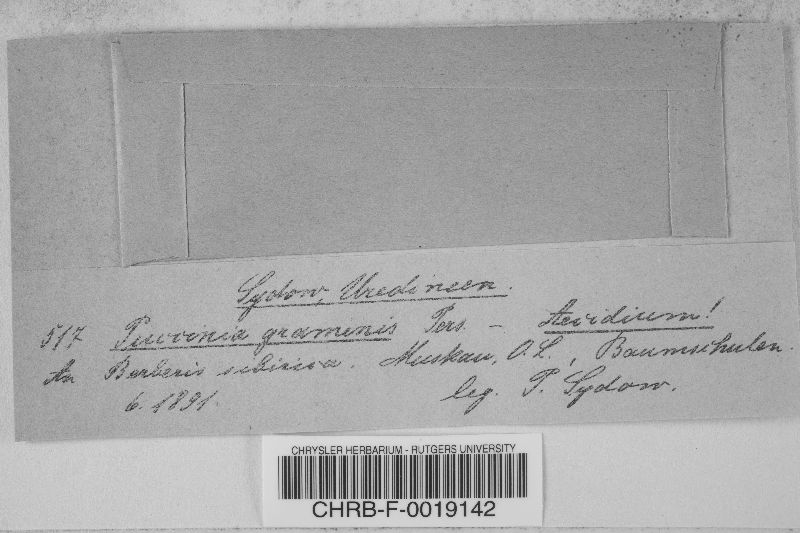 Sydow, Uredineen.
517 Puccinia graminis Pers. – Aecidium!
An Berberis sibirica. Muskau, O.L., Baumschulen.
6. 1891. leg. P. Sydow.
CHRYSLER HERBARIUM - RUTGERS UNIVERSITY
CHRB-F-0019142